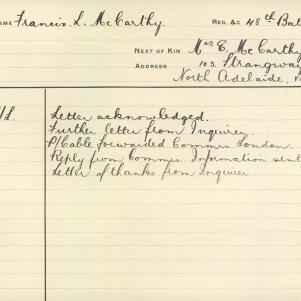 NAME Francis. L. McCarthy. REG. &C 48th Bat
NEXT OF KIN Mrs E. McCarthy
ADDRESS 103. Strangway
North Adelaide,
Letter acknowledged.
Further letter from Inquirer.
P/Cable forwarded Commrs London.
Reply from Commrs. Information sent
Letter of thanks from Inquirer.